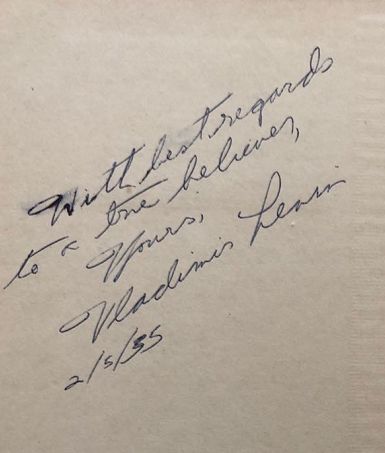 With best regards
to a true believer,
Yours,
Vladimir Lenin
2/5/55